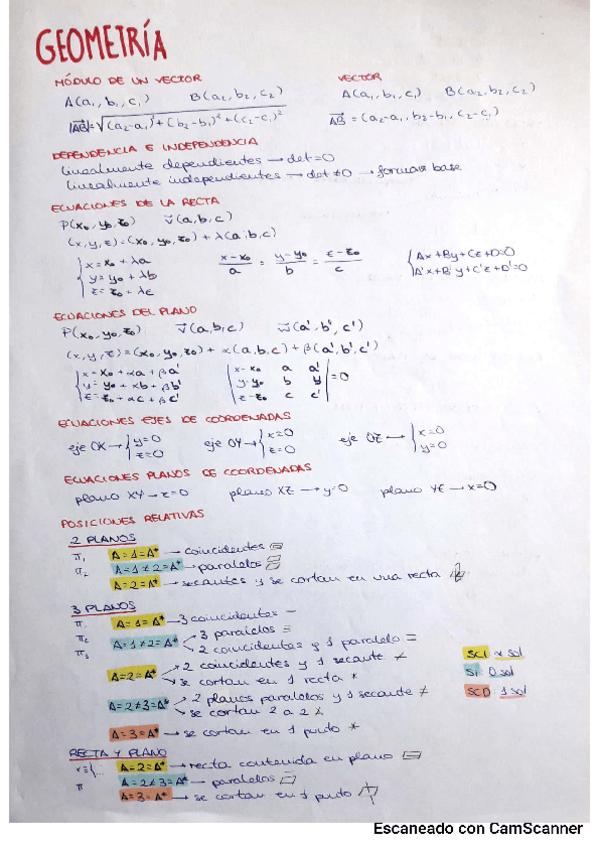 GEOMETRÍA
MÓDULO DE UN VECTOR
A(a₁, b₁, c₁) B(a₂, b₂, c₂)
|AB|=√(a₂-a₁)²+(b₂-b₁)²+(c₂-c₁)²
VECTOR
A(a₁, b₁, c₁) B(a₂, b₂, c₂)
AB = (a₂-a₁, b₂-b₁, c₂-c₁)
DEPENDENCIA E INDEPENDENCIA
linealmente dependientes → det=0
linealmente independientes → det≠0 → formar base
ECUACIONES DE LA RECTA
P(x₀, y₀, z₀) v(a, b, c)
(x, y, z)=(x₀, y₀, z₀) + λ(a, b, c)
x = x₀ + λa
y = y₀ + λb
z = z₀ + λc
x-x₀/a = y-y₀/b = z-z₀/c
Ax+By+Cz+D=0
A'x+B'y+C'z+D'=0
ECUACIONES DEL PLANO
P(x₀, y₀, z₀) v(a, b, c) w(a', b', c')
(x, y, z)=(x₀, y₀, z₀) + α(a, b, c) + β(a', b', c')
x = x₀ + αa + βa'
y = y₀ + αb + βb'
z = z₀ + αc + βc'
|x-x₀ a a'|
|y-y₀ b b'| =0
|z-z₀ c c'|
ECUACIONES EJES DE COORDENADAS
eje OX → {y=0 z=0 eje OY → {x=0 z=0 eje OZ → {x=0 y=0
ECUACIONES PLANOS DE COORDENADAS
plano XY → z=0 plano XZ → y=0 plano YZ → x=0
POSICIONES RELATIVAS
2 PLANOS
π₁ A=1=A* → coincidentes
π₂ A=1≠2=A* → paralelos
A=2=A* → secantes y se cortan en una recta
3 PLANOS
π₁ A=1=A* → 3 coincidentes
π₂ A=1≠2=A* → 3 paralelos
π₃ → 2 coincidentes y 1 paralelo
A=2=A* → 2 coincidentes y 1 secante
→ se cortan en 1 recta
A=2≠3=A* → 2 planos paralelos y 1 secante
→ se cortan 2 a 2
A=3=A* → se cortan en 1 punto
SCI ∞ sol
SI 0 sol
SCD 1 sol
RECTA Y PLANO
r≡{... A=2=A* → recta contenida en plano
π A=2≠3=A* → paralelos
A=3=A* → se cortan en 1 punto
Escaneado con CamScanner